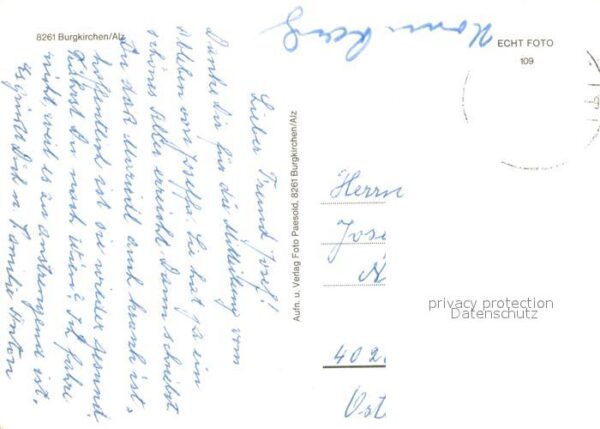 8261 Burgkirchen/Alz
ECHT FOTO
109
Lieber Freund Josef!
Danke Dir für die Mitteilung vom
Ableben von Josefa. Sie hat ja ein
schönes Alter erreicht. Dann schreibst
Du daß auch krank ist,
hoffentlich ist sie wieder gesund.
Fährst Du noch Ich fahre
nicht, weil es zu anstrengend ist.
Es grüßt Dich u. Familie Anton
Aufn. u. Verlag Foto Paesold, 8261 Burgkirchen/Alz
Herrn
Jose
402
Öst
privacy protection
Datenschutz